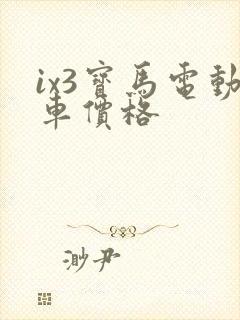 ix3寶馬電動
車價格
渺尹